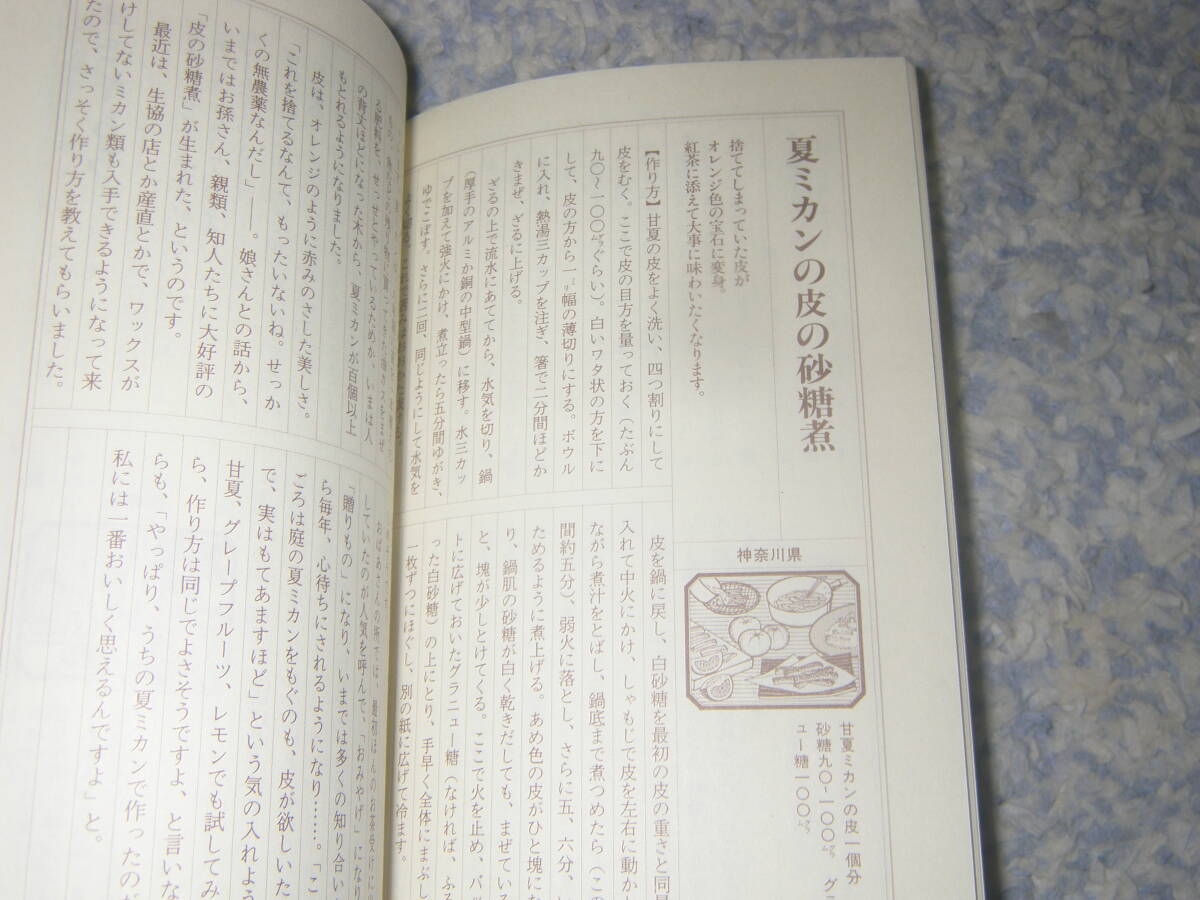 夏ミカンの皮の砂糖煮
捨ててしまっていた皮が
オレンジ色の宝石に変身。
紅茶に添えて大事に味わいたくなります。
【作り方】甘夏の皮をよく洗い、四つ割りにして
皮をむく。ここで皮の目方を量っておく（たぶん
九〇〜一〇〇㌘ぐらい）。白いワタ状の方を下に
して、皮の方から一㌢幅の薄切りにする。ボウル
に入れ、熱湯三カップを注ぎ、箸で二分間ほどか
きまぜ、ざるに上げる。
ざるの上で流水にあててから、水気を切り、鍋
（厚手のアルミか銅の中型鍋）に移す。水三カッ
プを加えて強火にかけ、煮立ったら五分間ゆがき、
ゆでこぼす。さらに二回、同じようにして水気を
神奈川県
甘夏ミカンの皮一個分
砂糖九〇〜一〇〇㌘ グラ
ュー糖一〇〇㌘
皮を鍋に戻し、白砂糖を最初の皮の重さと同
入れて中火にかけ、しゃもじで皮を左右に動か
ながら煮汁をとばし、鍋底まで煮つめたら（こ
間約五分）、弱火に落とし、さらに五、六分、
ためるように煮上げる。あめ色の皮がひと塊に
り、鍋肌の砂糖が白く乾きだしても、まぜている
と、塊が少しとけてくる。ここで火を止め、バッ
トに広げておいたグラニュー糖（なければ、ふる
った白砂糖）の上にとり、手早く全体にまぶし
一枚ずつにほぐし、別の紙に広げて冷ます。
る肥料を、せっせとやっているためか、いまは人
の背丈ほどになった木から、夏ミカンが百個以上
もとれるようになりました。
皮は、オレンジのように赤みのさした美しさ。
「これを捨てるなんて、もったいないね。せっか
くの無農薬なんだし」――。娘さんとの話から、
いまではお孫さん、親類、知人たちに大好評の
「皮の砂糖煮」が生まれた、というのです。
最近は、生協の店とか産直とかで、ワックスが
けしてないミカン類も入手できるようになって来
たので、さっそく作り方を教えてもらいました。
最初ほんのお茶受けに
していたのが人気を呼んで、「おみやげ」になり
「贈りもの」になり、いまでは多くの知り合い
ら毎年、心待ちにされるようになり……。「こ
ごろは庭の夏ミカンをもぐのも、皮が欲しいた
で、実はもてあますほど」という気の入れよう
甘夏、グレープフルーツ、レモンでも試してみ
ら、作り方は同じでよさそうですよ、と言いな
らも、「やっぱり、うちの夏ミカンで作ったのが
私には一番おいしく思えるんですよ」と。